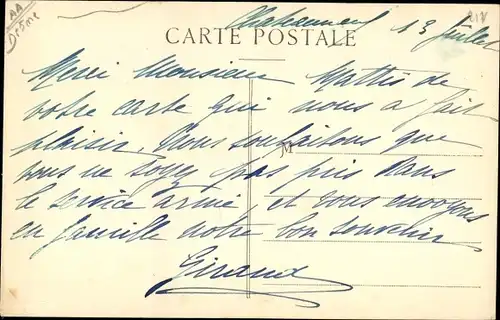 AA
Drôme
Chateauneuf 13 Juillet
CARTE POSTALE
Merci Monsieur Mattis de
votre carte qui nous a fait
plaisir. Nous souhaitons que
vous ne soyez pas pris dans
le service armé, et vous envoyons
en famille notre bon souvenir
Giraud